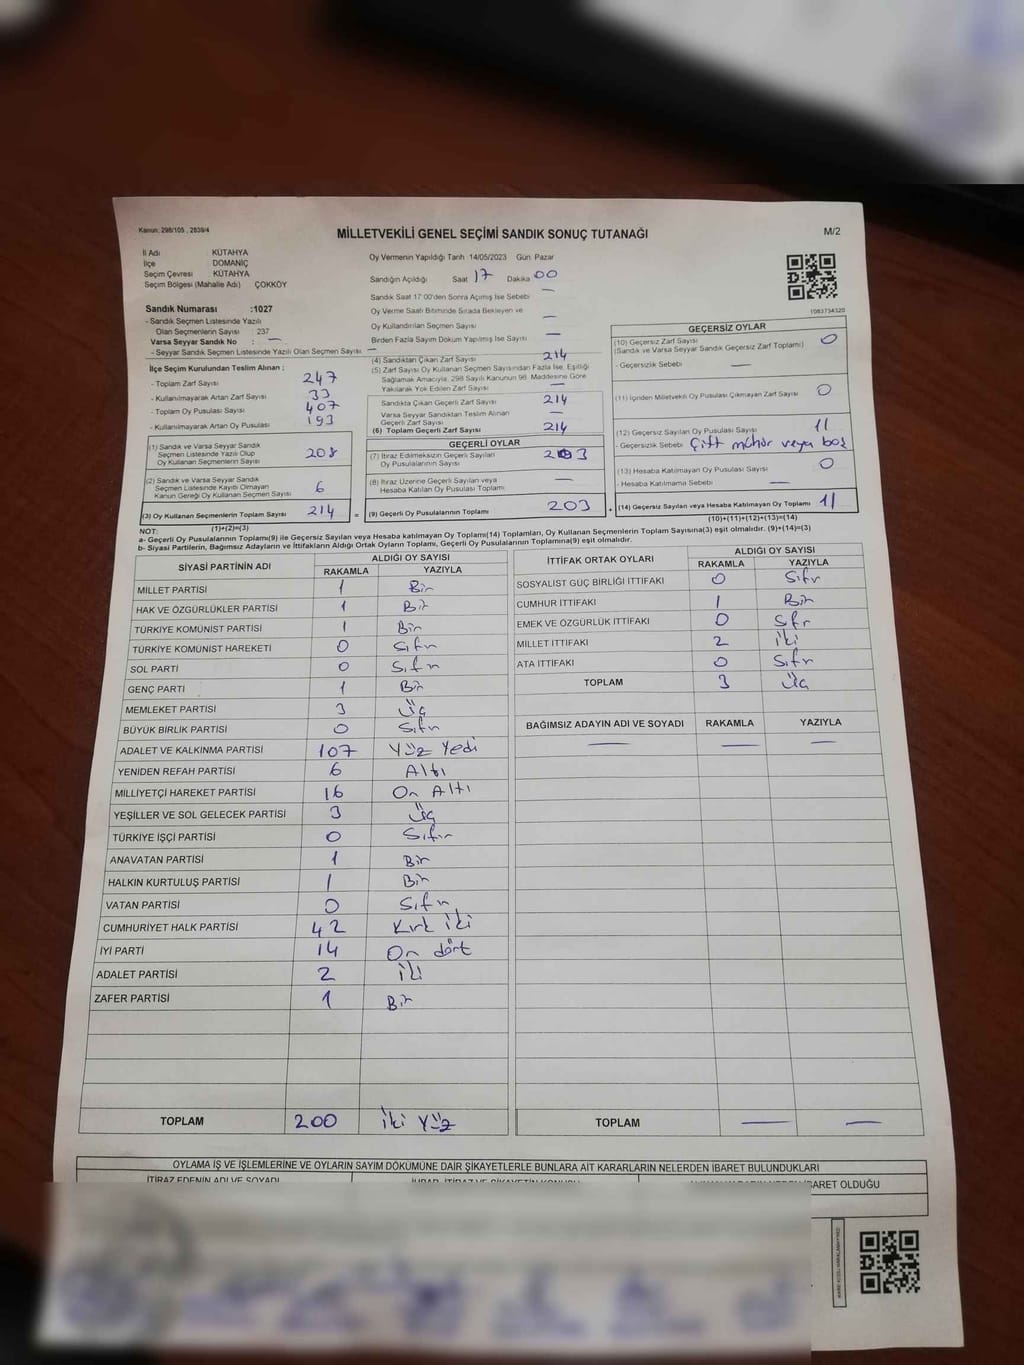 Kanun: 298/105, 2839/4
MİLLETVEKİLİ GENEL SEÇİMİ SANDIK SONUÇ TUTANAĞI
M/2
İl Adı KÜTAHYA
İlçe DOMANİÇ
Seçim Çevresi KÜTAHYA
Seçim Bölgesi (Mahalle Adı) ÇOKKÖY
Oy Vermenin Yapıldığı Tarih 14/05/2023 Gün Pazar
Sandığın Açıldığı Saat 17 Dakika 00
Sandık Saat 17:00'den Sonra Açımış İse Sebebi —
Oy Verme Saati Bitiminde Sırada Bekleyen ve
Oy Kullandırılan Seçmen Sayısı —
Birden Fazla Sayım Döküm Yapılmış İse Sayısı —
1083734320
Sandık Numarası :1027
- Sandık Seçmen Listesinde Yazılı
Olan Seçmenlerin Sayısı : 237
Varsa Seyyar Sandık No : —
- Seyyar Sandık Seçmen Listesinde Yazılı Olan Seçmen Sayısı —
İlçe Seçim Kurulundan Teslim Alınan :
- Toplam Zarf Sayısı 247
- Kullanılmayarak Artan Zarf Sayısı 33
- Toplam Oy Pusulası Sayısı 407
- Kullanılmayarak Artan Oy Pusulası 193
(1) Sandık ve Varsa Seyyar Sandık
Seçmen Listesinde Yazılı Olup
Oy Kullanan Seçmenlerin Sayısı 208
(2) Sandık ve Varsa Seyyar Sandık
Seçmen Listesinde Kaydı Olmayan
Kanun Gereği Oy Kullanan Seçmen Sayısı 6
(3) Oy Kullanan Seçmenlerin Toplam Sayısı 214 =
(4) Sandıktan Çıkan Zarf Sayısı 214
(5) Zarf Sayısı Oy Kullanan Seçmen Sayısından Fazla İse, Eşitliği
Sağlamak Amacıyla, 298 Sayılı Kanunun 98. Maddesine Göre
Yakılarak Yok Edilen Zarf Sayısı —
Sandıkta Çıkan Geçerli Zarf Sayısı 214
Varsa Seyyar Sandıktan Teslim Alınan
Geçerli Zarf Sayısı —
(6) Toplam Geçerli Zarf Sayısı 214
GEÇERLİ OYLAR
(7) İtiraz Edilmeksizin Geçerli Sayılan
Oy Pusulalarının Sayısı 203
(8) İtiraz Üzerine Geçerli Sayılan veya
Hesaba Katılan Oy Pusulası Toplamı —
(9) Geçerli Oy Pusulalarının Toplamı 203 +
GEÇERSİZ OYLAR
(10) Geçersiz Zarf Sayısı 0
(Sandık ve Varsa Seyyar Sandık Geçersiz Zarf Toplamı)
- Geçersizlik Sebebi —
(11) İçinden Milletvekili Oy Pusulası Çıkmayan Zarf Sayısı 0
(12) Geçersiz Sayılan Oy Pusulası Sayısı 11
- Geçersizlik Sebebi Çift mühür veya boş
(13) Hesaba Katılmayan Oy Pusulası Sayısı 0
- Hesaba Katılmama Sebebi —
(14) Geçersiz Sayılan veya Hesaba Katılmayan Oy Toplamı 11
NOT: (1)+(2)=(3)
(10)+(11)+(12)+(13)=(14)
a- Geçerli Oy Pusulalarının Toplamı(9) ile Geçersiz Sayılan veya Hesaba katılmayan Oy Toplamı(14) Toplamları, Oy Kullanan Seçmenlerin Toplam Sayısına(3) eşit olmalıdır. (9)+(14)=(3)
b- Siyasi Partilerin, Bağımsız Adayların ve İttifakların Aldığı Ortak Oyların Toplamı, Geçerli Oy Pusulalarının Toplamına(9) eşit olmalıdır.
SİYASİ PARTİNİN ADI ALDIĞI OY SAYISI
RAKAMLA YAZIYLA
MİLLET PARTİSİ 1 Bir
HAK VE ÖZGÜRLÜKLER PARTİSİ 1 Bir
TÜRKİYE KOMÜNİST PARTİSİ 1 Bir
TÜRKİYE KOMÜNİST HAREKETİ 0 Sıfır
SOL PARTİ 0 Sıfır
GENÇ PARTİ 1 Bir
MEMLEKET PARTİSİ 3 Üç
BÜYÜK BİRLİK PARTİSİ 0 Sıfır
ADALET VE KALKINMA PARTİSİ 107 Yüz Yedi
YENİDEN REFAH PARTİSİ 6 Altı
MİLLİYETÇİ HAREKET PARTİSİ 16 On Altı
YEŞİLLER VE SOL GELECEK PARTİSİ 3 Üç
TÜRKİYE İŞÇİ PARTİSİ 0 Sıfır
ANAVATAN PARTİSİ 1 Bir
HALKIN KURTULUŞ PARTİSİ 1 Bir
VATAN PARTİSİ 0 Sıfır
CUMHURİYET HALK PARTİSİ 42 Kırk iki
İYİ PARTİ 14 On dört
ADALET PARTİSİ 2 iki
ZAFER PARTİSİ 1 Bir
TOPLAM 200 iki Yüz
İTTİFAK ORTAK OYLARI ALDIĞI OY SAYISI
RAKAMLA YAZIYLA
SOSYALİST GÜÇ BİRLİĞİ İTTİFAKI 0 Sıfır
CUMHUR İTTİFAKI 1 Bir
EMEK VE ÖZGÜRLÜK İTTİFAKI 0 Sıfır
MİLLET İTTİFAKI 2 iki
ATA İTTİFAKI 0 Sıfır
TOPLAM 3 Üç
BAĞIMSIZ ADAYIN ADI VE SOYADI RAKAMLA YAZIYLA
— — —
TOPLAM — —
OYLAMA İŞ VE İŞLEMLERİNE VE OYLARIN SAYIM DÖKÜMÜNE DAİR ŞİKAYETLERLE BUNLARA AİT KARARLARIN NELERDEN İBARET BULUNDUKLARI
İTİRAZ EDENİN ADI VE SOYADI
İBARET OLDUĞU